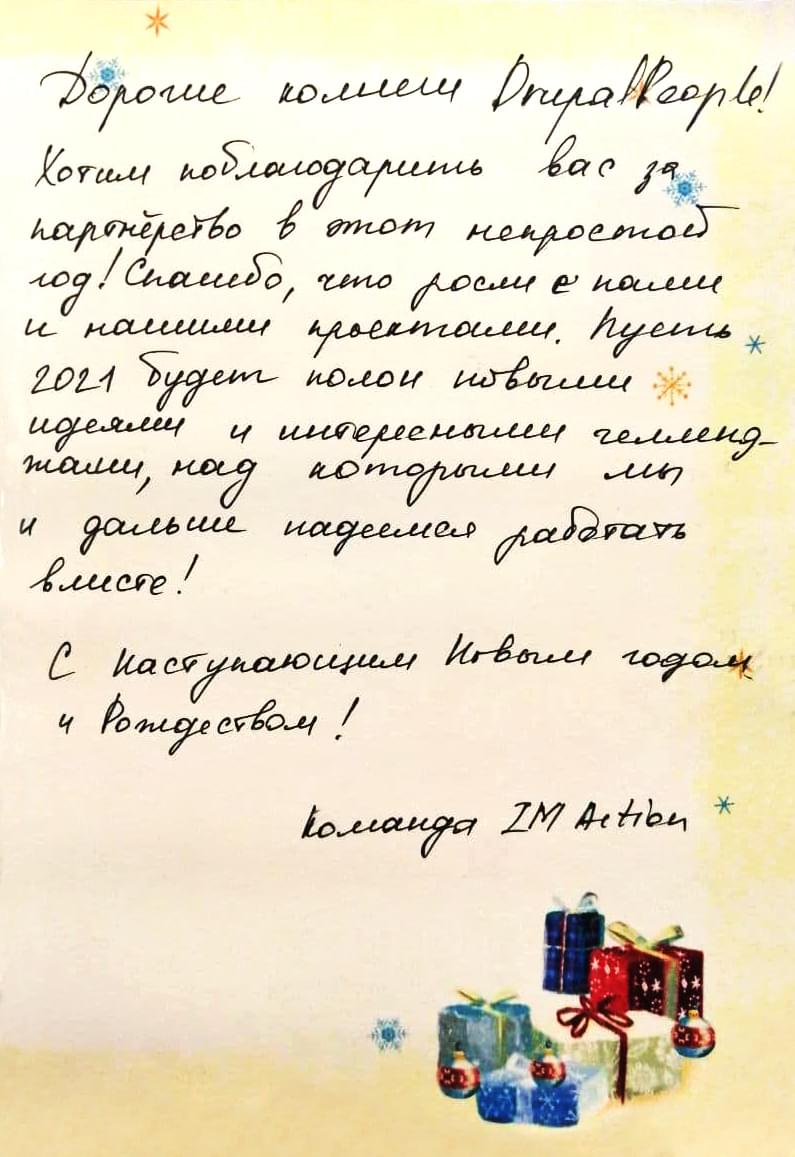 Дорогие коллеги DrupalPeople!
Хотим поблагодарить вас за
партнёрство в этот непростой
год! Спасибо, что росли с нами
и нашими проектами. Пусть
2021 будет полон новыми
идеями и интересными челленд-
жами, над которыми мы
и дальше надеемся работать
вместе!
С Наступающим Новым годом
и Рождеством!
Команда IM Action